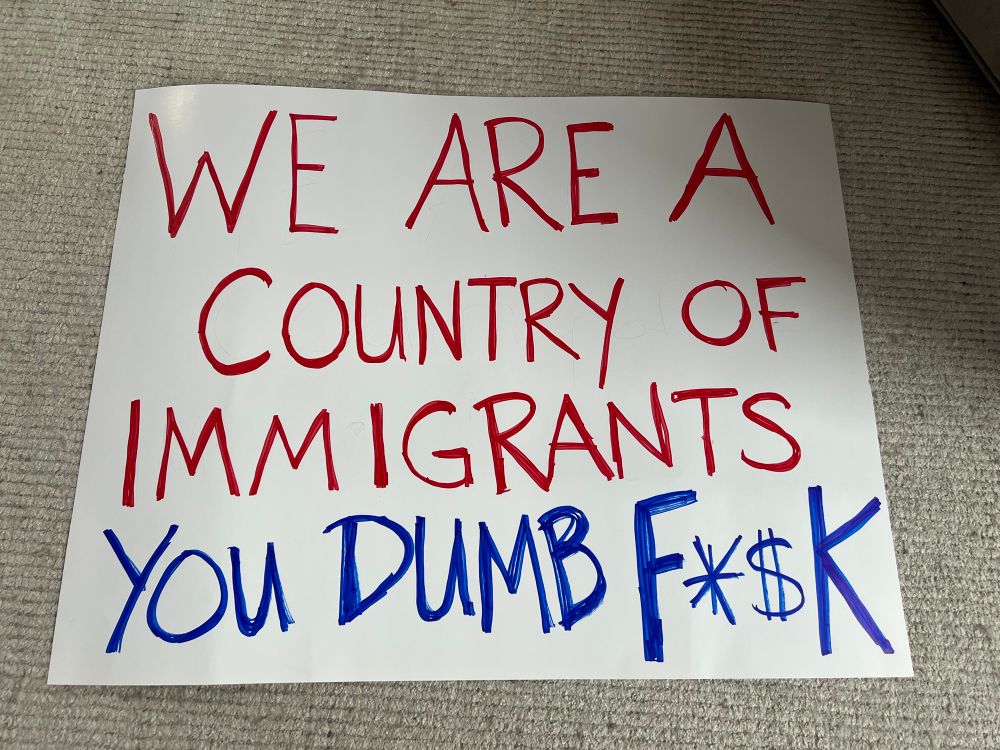 WE ARE A
COUNTRY OF
IMMIGRANTS
YOU DUMB F*$K